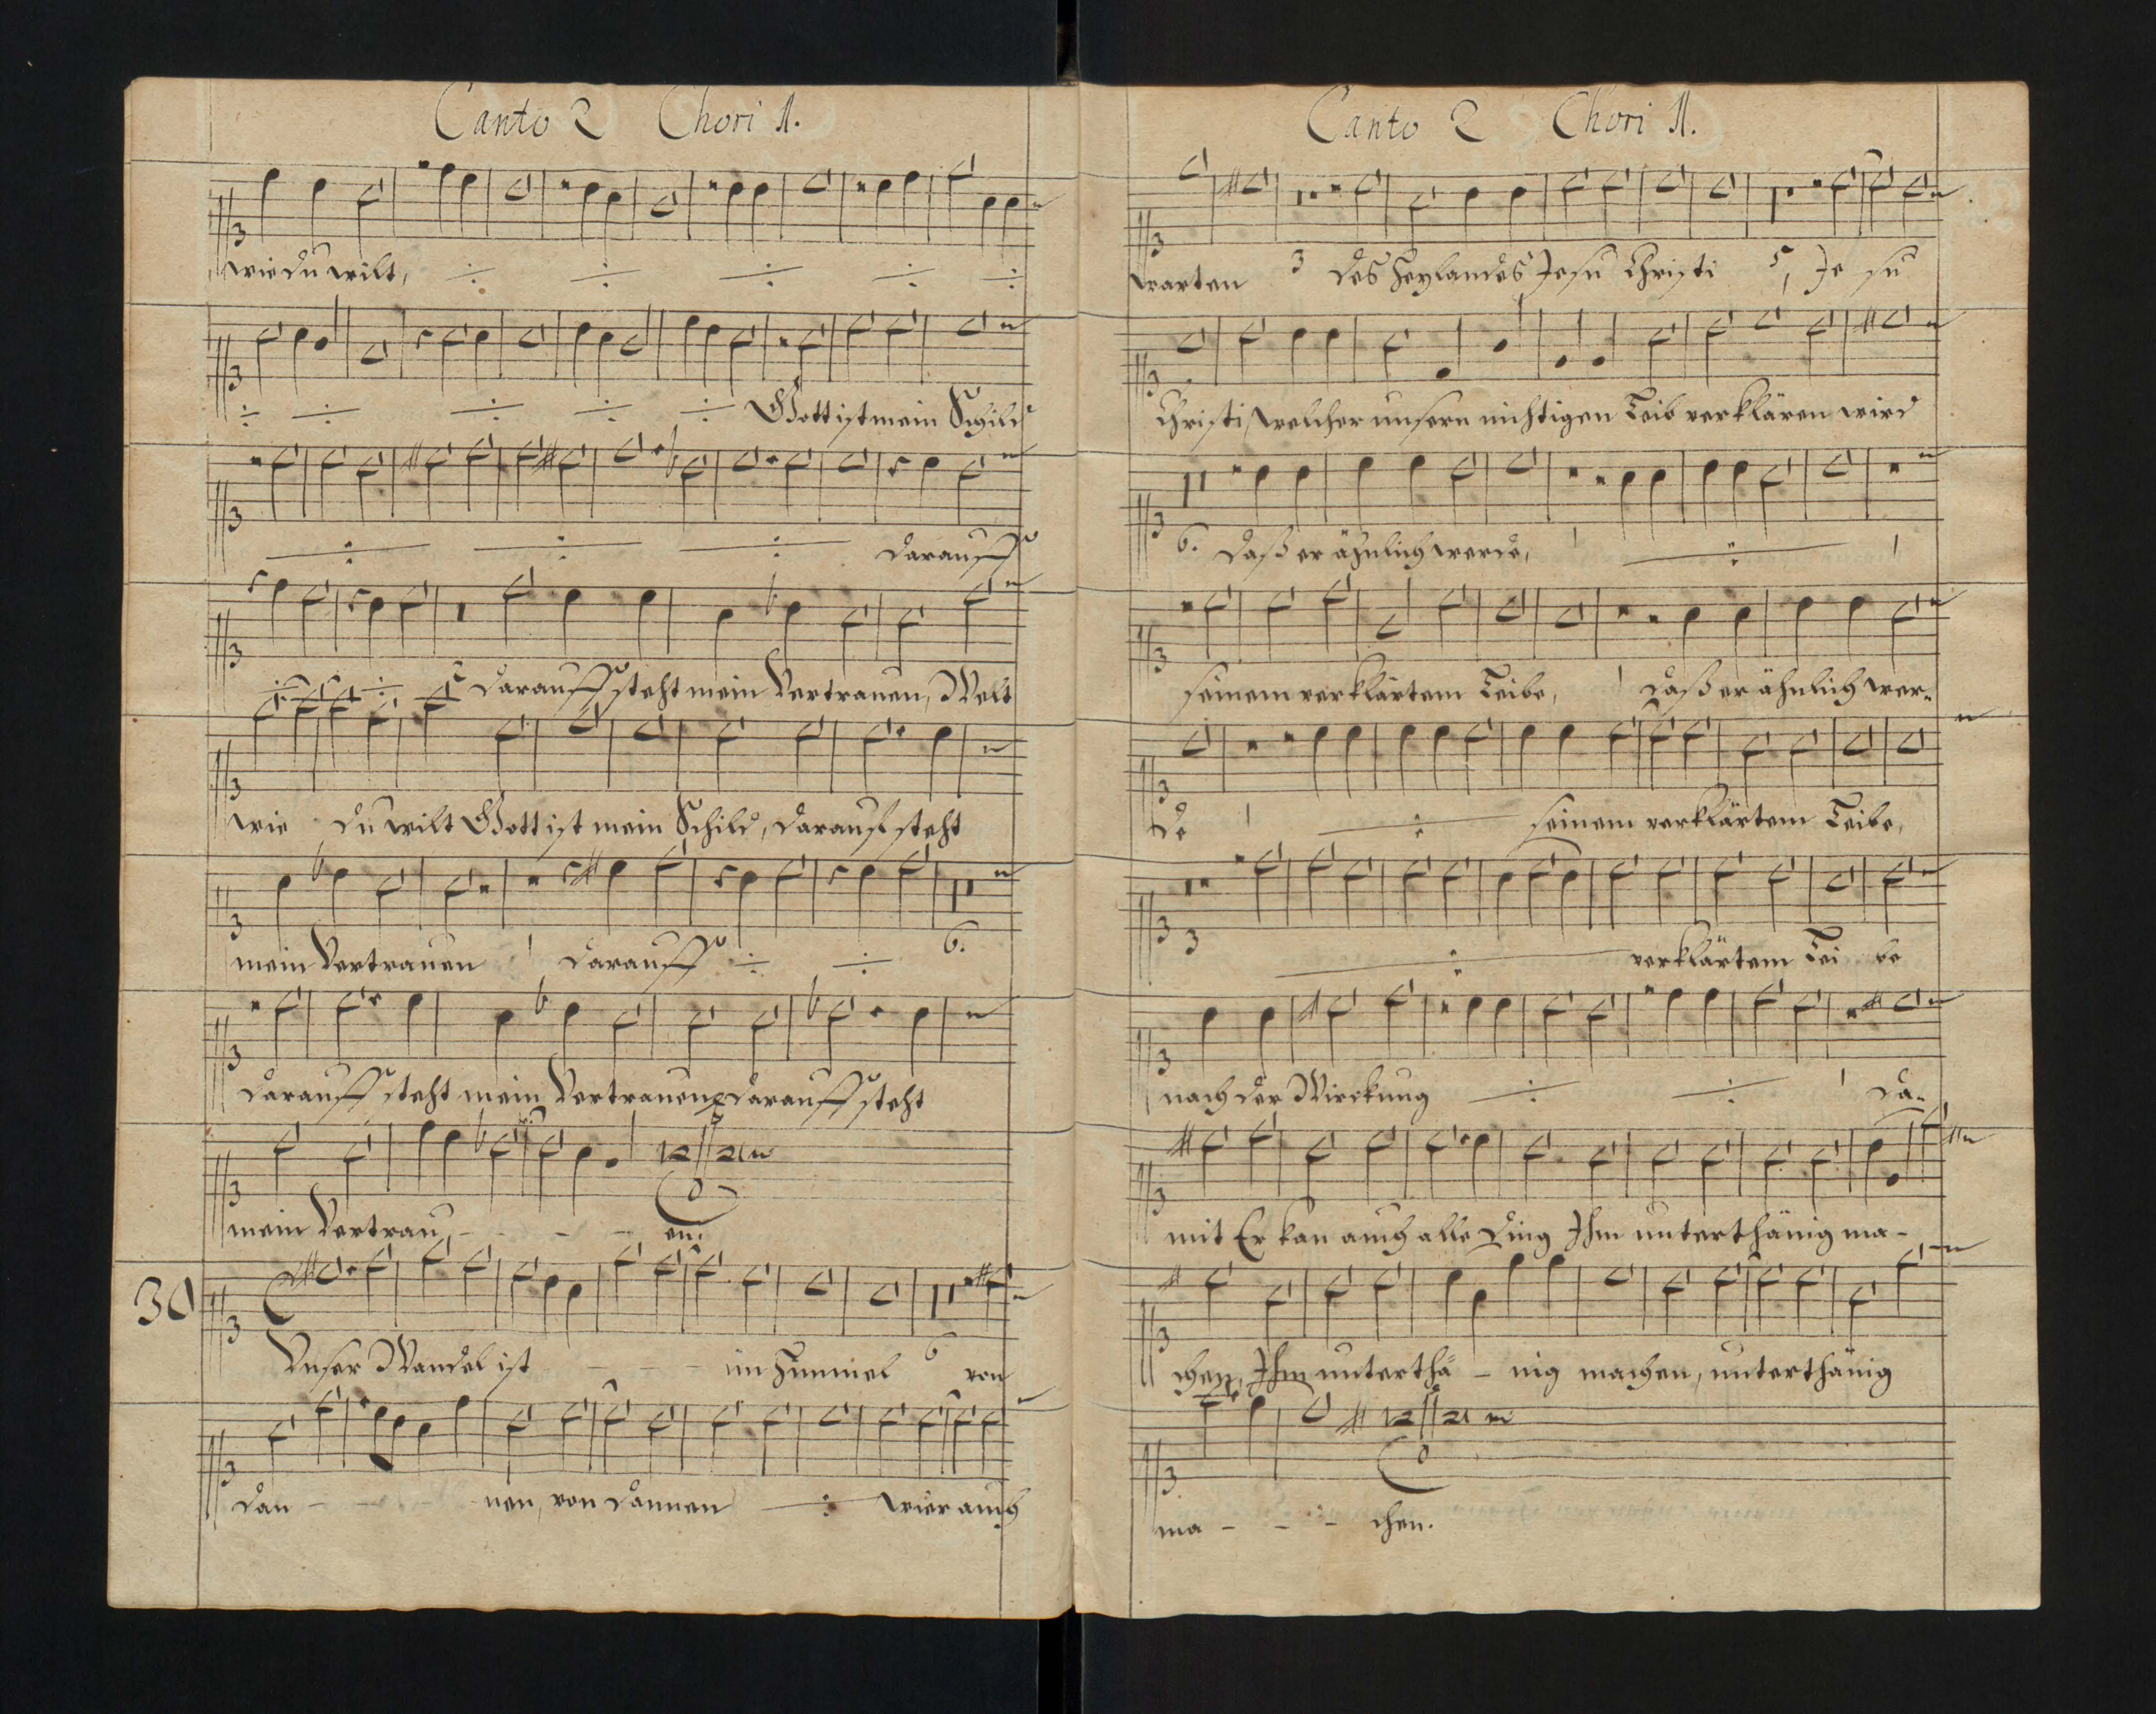 Canto 2 Chori 1.
wie du wilt,
Gott ist mein Schild
darauff
darauff steht mein Vertrauen, Welt
wie du wilt Gott ist mein Schild, darauf steht
mein Vertrauen darauff 6.
darauff steht mein Vertrauen, darauff steht
mein Vertrau - - - en.
30
Unser Wandel ist - - - im Himmel 6 von
dan - - - nen, von dannen wier auch
Canto 2 Chori 1.
warten 3 des Heylandes Jesu Christi 5, Je su
Christi, welcher unsern nichtigen Leib verklären wird
6. daß er ähnlich werde,
seinem verklärtem Leibe, daß er ähnlich wer-
de seinem verklärtem Leibe,
3 verklärtem Lei be
nach der Wirckung da-
mit Er kan auch alle Ding Ihm unterthänig ma-
chen, Ihm unterthä - nig machen, unterthänig
ma - - - chen.